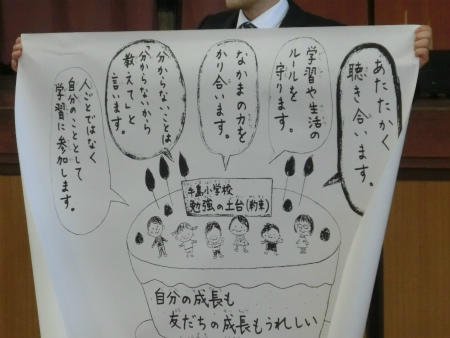 あたたかく
聴き合います。
学習や生活の
ルールを
守ります。
なかまの力を
かり合います。
「分からないことは
「分からないから
教えて」と
言います。
人ごとではなく
自分のこととして
学習に参加します。
牛島小学校
勉強の土台(約束)
自分の成長も
友だちの成長もうれしい